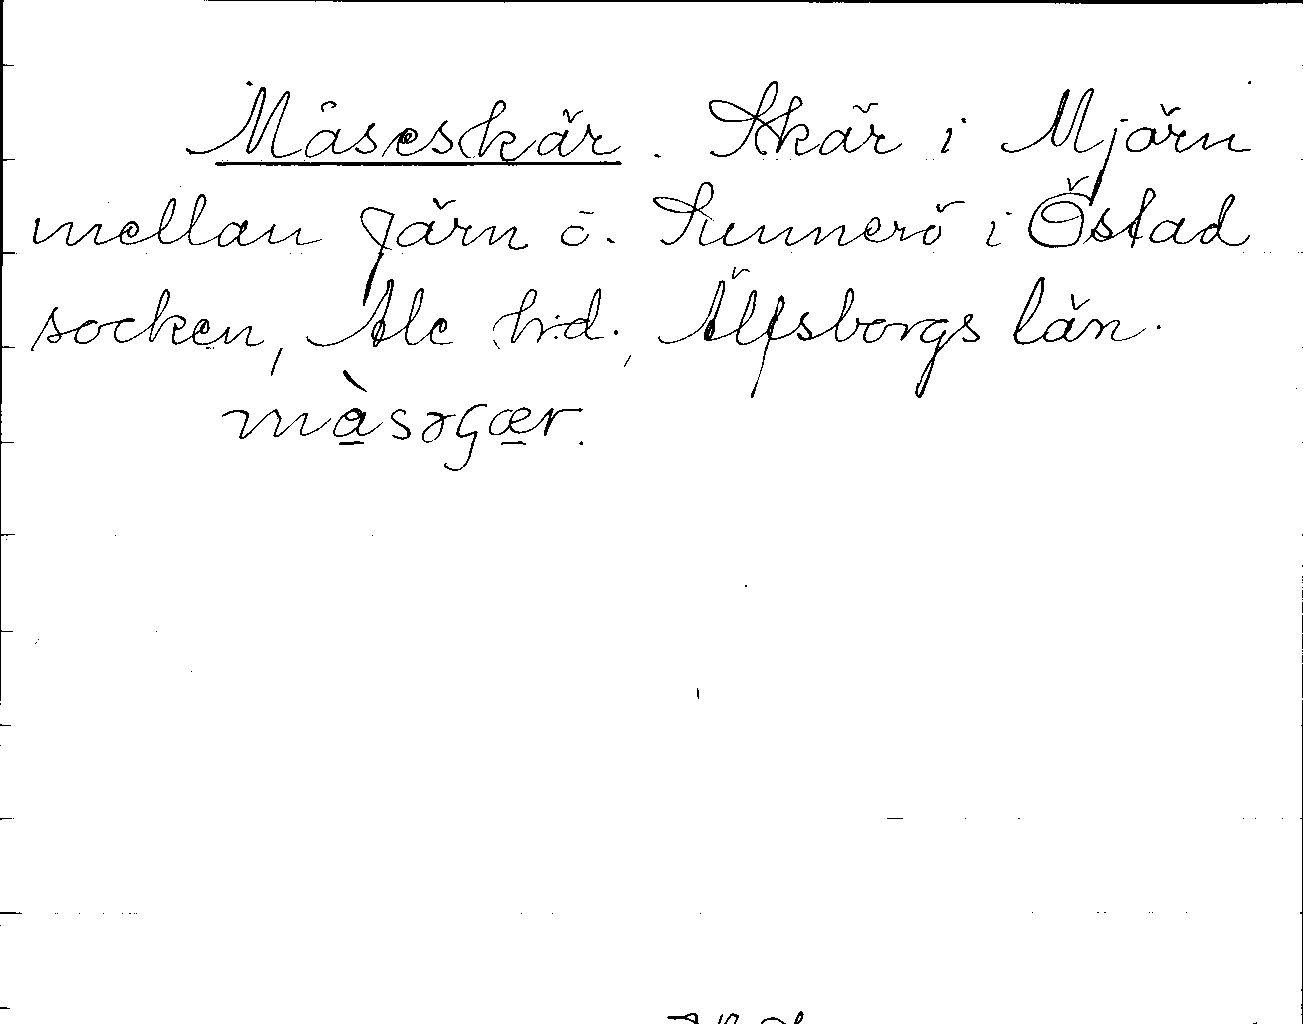 Måseskär. Skär i Mjörn
mellan Järn o. Sunnerö i Östad
socken, Ale hrd., Älfsborgs län.
màsəʂær.